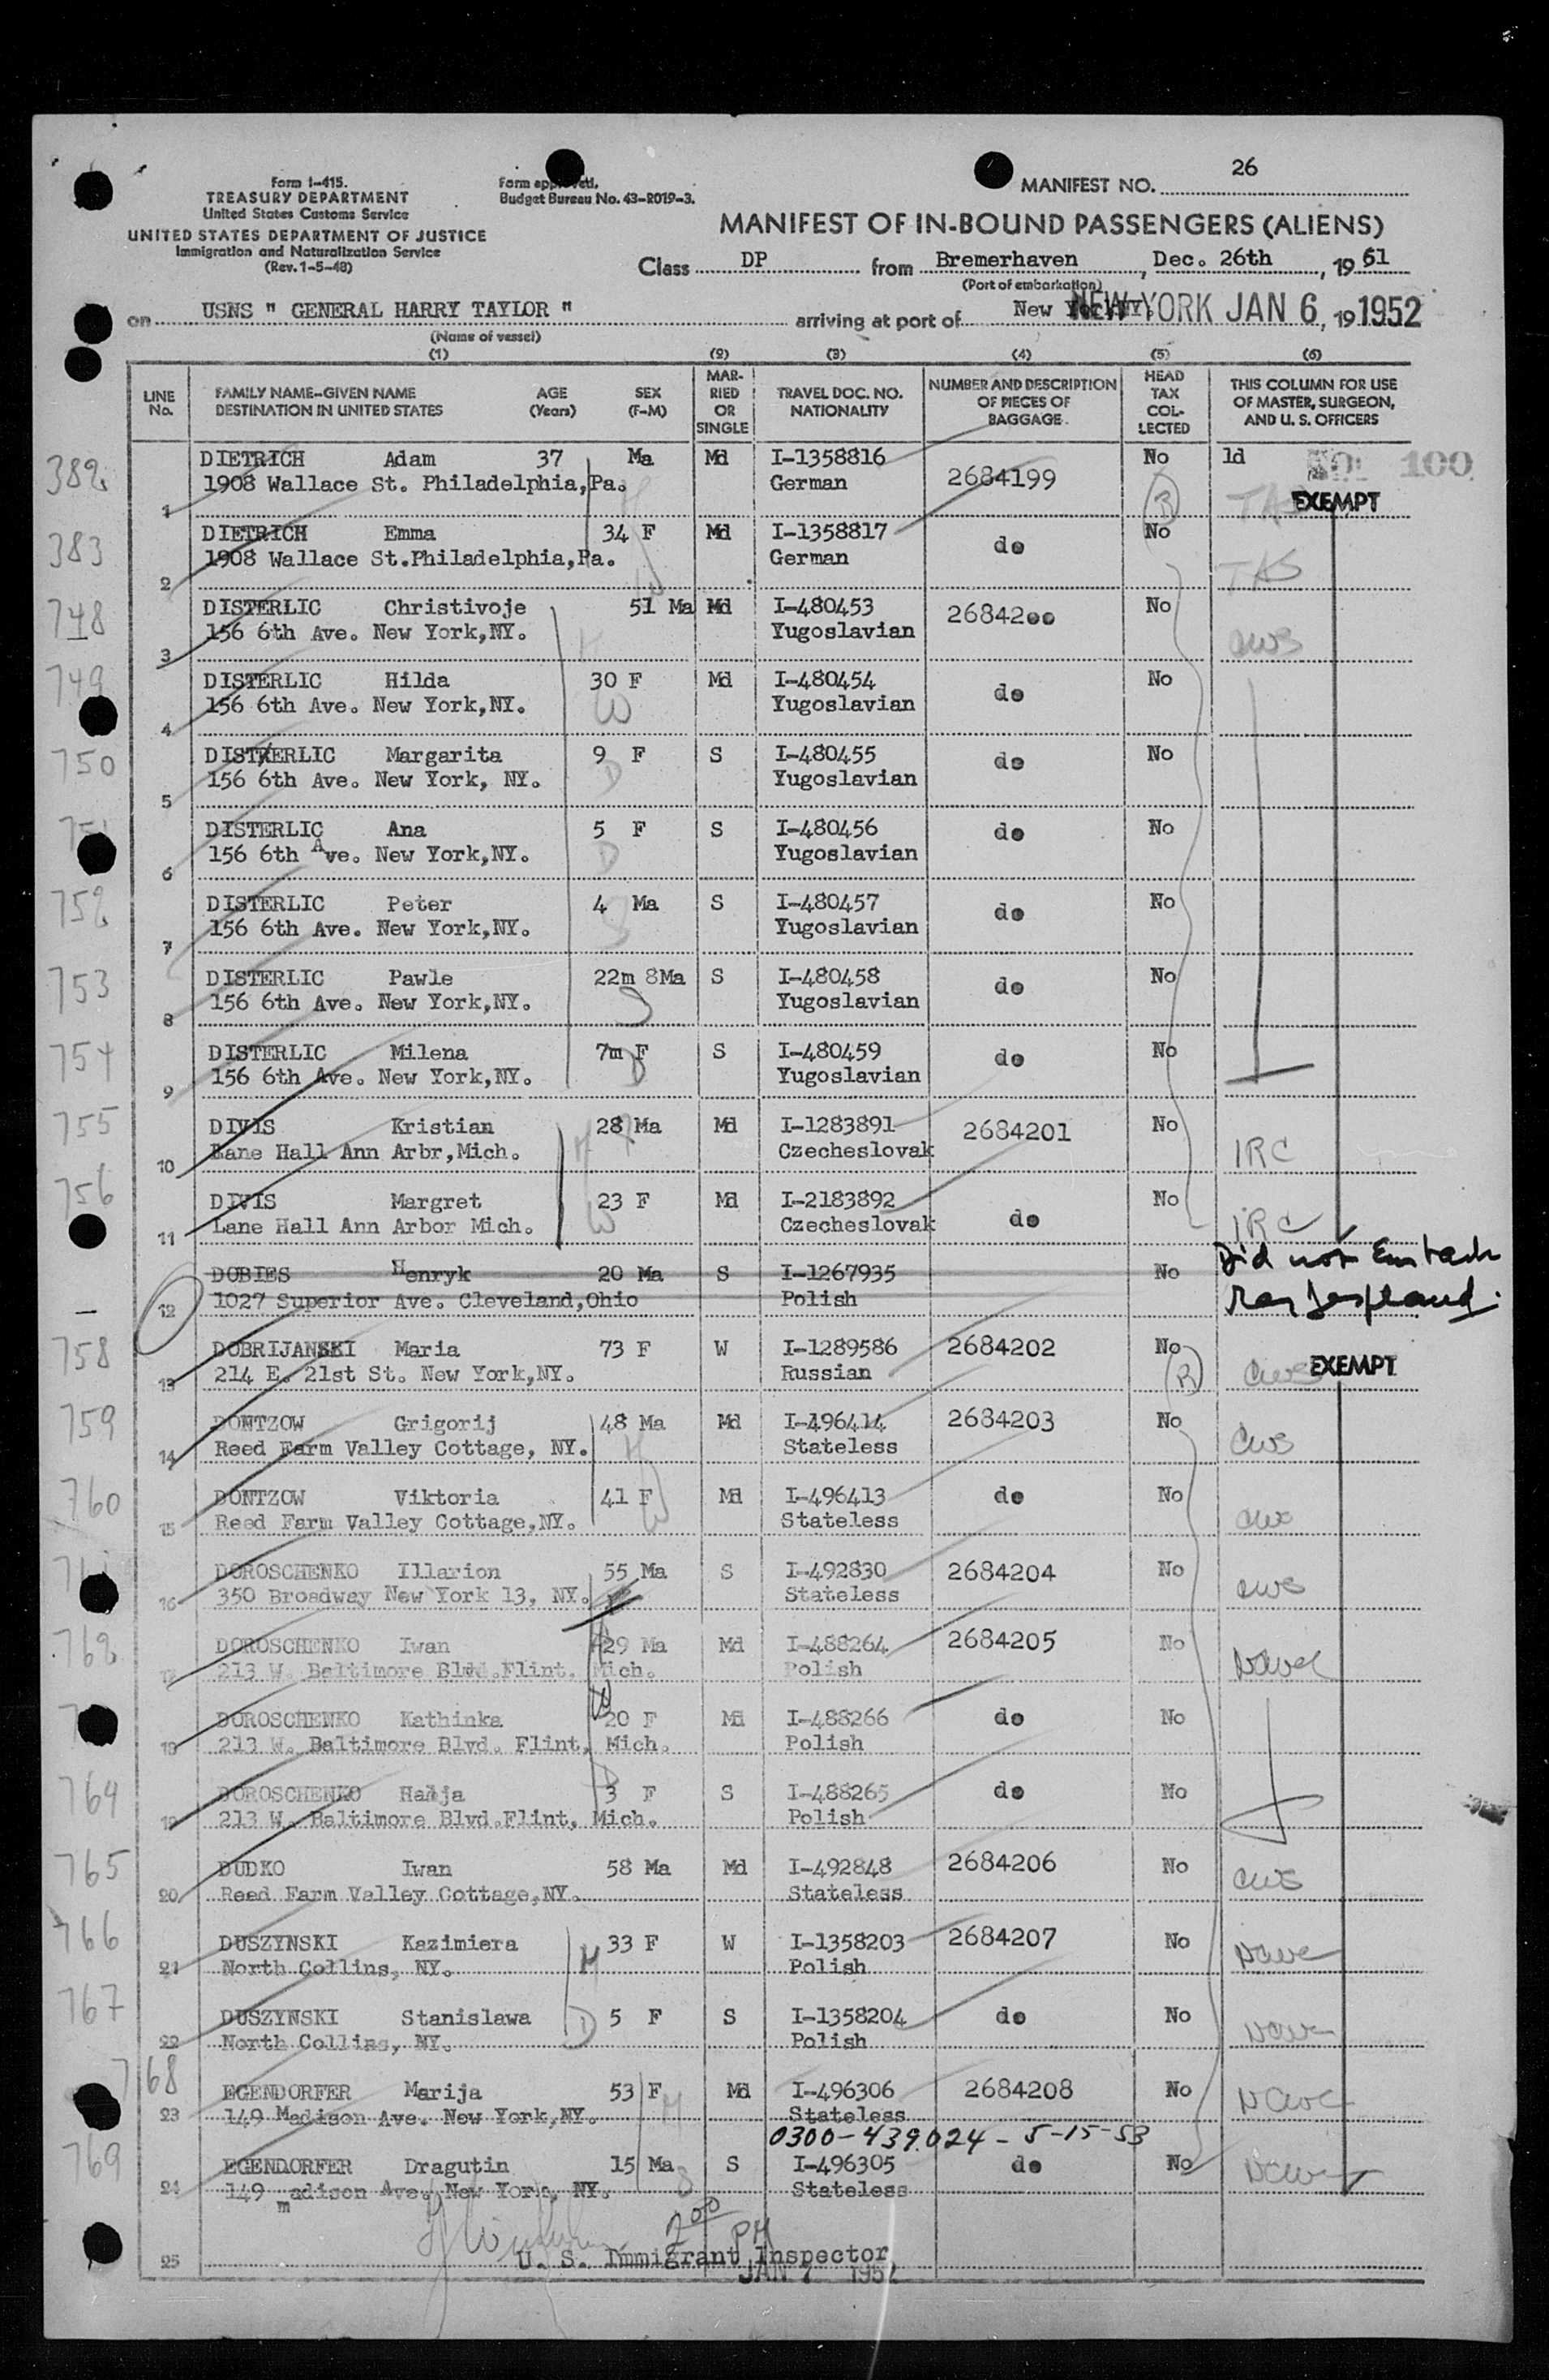 26
Form I-415.
TREASURY DEPARTMENT
United States Customs Service
UNITED STATES DEPARTMENT OF JUSTICE
Immigration and Naturalization Service
(Rev. 1-5-48)
Form approved.
Budget Bureau No. 43-R019-3.
MANIFEST NO.
MANIFEST OF IN-BOUND PASSENGERS (ALIENS)
Class DP from Bremerhaven, Dec. 26th, 1951
(Port of embarkation)
on USNS " GENERAL HARRY TAYLOR " arriving at port of New York NY. NEW YORK JAN 6, 19 1952
(Name of vessel)
(1) (2) (3) (4) (5) (6)
LINE No. FAMILY NAME-GIVEN NAME DESTINATION IN UNITED STATES AGE (Years) SEX (F-M) MARRIED OR SINGLE TRAVEL DOC. NO. NATIONALITY NUMBER AND DESCRIPTION OF PIECES OF BAGGAGE HEAD TAX COLLECTED THIS COLUMN FOR USE OF MASTER, SURGEON, AND U. S. OFFICERS
382 DIETRICH Adam 37 Ma Md I-1358816 2684199 No 1d 100
1 1908 Wallace St. Philadelphia,Pa. German (R) TAS EXEMPT
383 DIETRICH Emma 34 F Md I-1358817 do No
2 1908 Wallace St.Philadelphia,Pa. German TAS
748 DISTERLIC Christivoje 51 Ma Md I-480453 2684200 No
3 156 6th Ave. New York,NY. Yugoslavian cws
749 DISTERLIC Hilda 30 F Md I-480454 do No
4 156 6th Ave. New York,NY. W Yugoslavian
750 DISTERLIC Margarita 9 F S I-480455 do No
5 156 6th Ave. New York, NY. D Yugoslavian
DISTERLIC Ana 5 F S I-480456 do No
6 156 6th Ave. New York,NY. D Yugoslavian
752 DISTERLIC Peter 4 Ma S I-480457 do No
7 156 6th Ave. New York,NY. S Yugoslavian
753 DISTERLIC Pawle 22m 8Ma S I-480458 do No
8 156 6th Ave. New York,NY. S Yugoslavian
754 DISTERLIC Milena 7m F S I-480459 do No
9 156 6th Ave. New York,NY. D Yugoslavian
755 DIVIS Kristian 28 Ma Md I-1283891 2684201 No
10 Lane Hall Ann Arbr,Mich. H Czecheslovak IRC
756 DIVIS Margret 23 F Md I-2183892 do No
11 Lane Hall Ann Arbor Mich. W Czecheslovak IRC
DOBIES Henryk 20 Ma S I-1267935 No Did not Embark
12 1027 Superior Ave. Cleveland,Ohio Polish
758 DOBRIJANSKI Maria 73 F W I-1289586 2684202 No
13 214 E. 21st St. New York,NY. Russian (R) cws EXEMPT
759 DONTZOW Grigorij 48 Ma Md I-496414 2684203 No
14 Reed Farm Valley Cottage, NY. H Stateless cws
760 DONTZOW Viktoria 41 F Md I-496413 do No
15 Reed Farm Valley Cottage,NY. W Stateless cws
DOROSCHENKO Illarion 55 Ma S I-492830 2684204 No
16 350 Broadway New York 13, NY. Stateless cws
762 DOROSCHENKO Iwan 29 Ma Md I-488264 2684205 No
17 213 W. Baltimore Blvd.Flint, Mich. Polish NCWC
DOROSCHENKO Kathinka 20 F Md I-488266 do No
18 213 W. Baltimore Blvd. Flint, Mich. Polish
764 DOROSCHENKO Hanja 3 F S I-488265 do No
19 213 W. Baltimore Blvd.Flint, Mich. Polish
765 DUDKO Iwan 58 Ma Md I-492848 2684206 No
20 Reed Farm Valley Cottage,NY. Stateless cws
766 DUSZYNSKI Kazimiera 33 F W I-1358203 2684207 No
21 North Collins, NY. M Polish NCWC
767 DUSZYNSKI Stanislawa 5 F S I-1358204 do No
22 North Collins, NY. D Polish NCWC
768 EGENDORFER Marija 53 F Md I-496306 2684208 No
23 149 Madison Ave. New York,NY. M Stateless NCWC
0300-439.024 - 5-15-53
769 EGENDORFER Dragutin 15 Ma S I-496305 do No
24 149 madison Ave. New York, NY. S Stateless NCWC
2 00 PM
25 U. S. Immigrant Inspector
JAN 7 1952